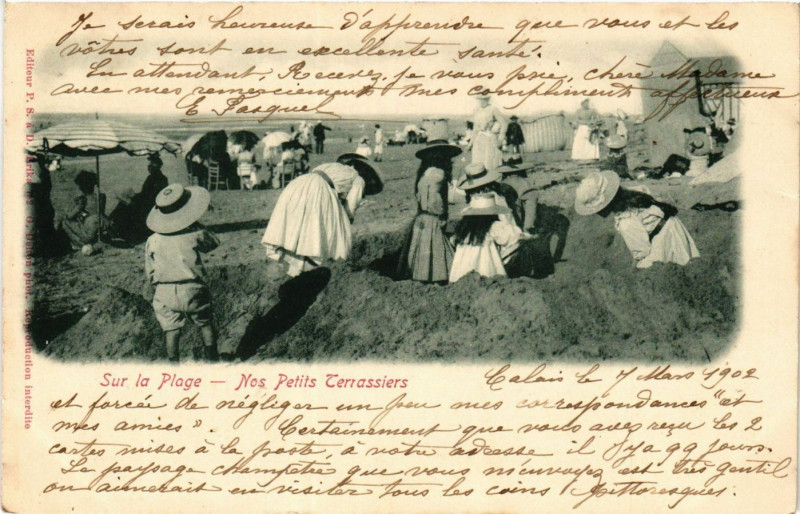 Je serais heureuse d'apprendre que vous et les
vôtres sont en excellente santé.
En attendant, Recevez, je vous prie, chère Madame
avec mes remerciements mes compliments affectueux
E Pasquel
Editeur P. S. à D. photo. Reproduction interdite
Sur la Plage — Nos Petits Terrassiers
Calais le 7 Mars 1902
et forcée de négliger un peu mes correspondances "et
mes amies". Certainement que vous avez reçu les 2
cartes mises à la poste, à votre adresse il y a qq jours.
Le paysage champêtre que vous m'envoyez est très gentil
on aimerait en visiter tous les coins pittoresques.